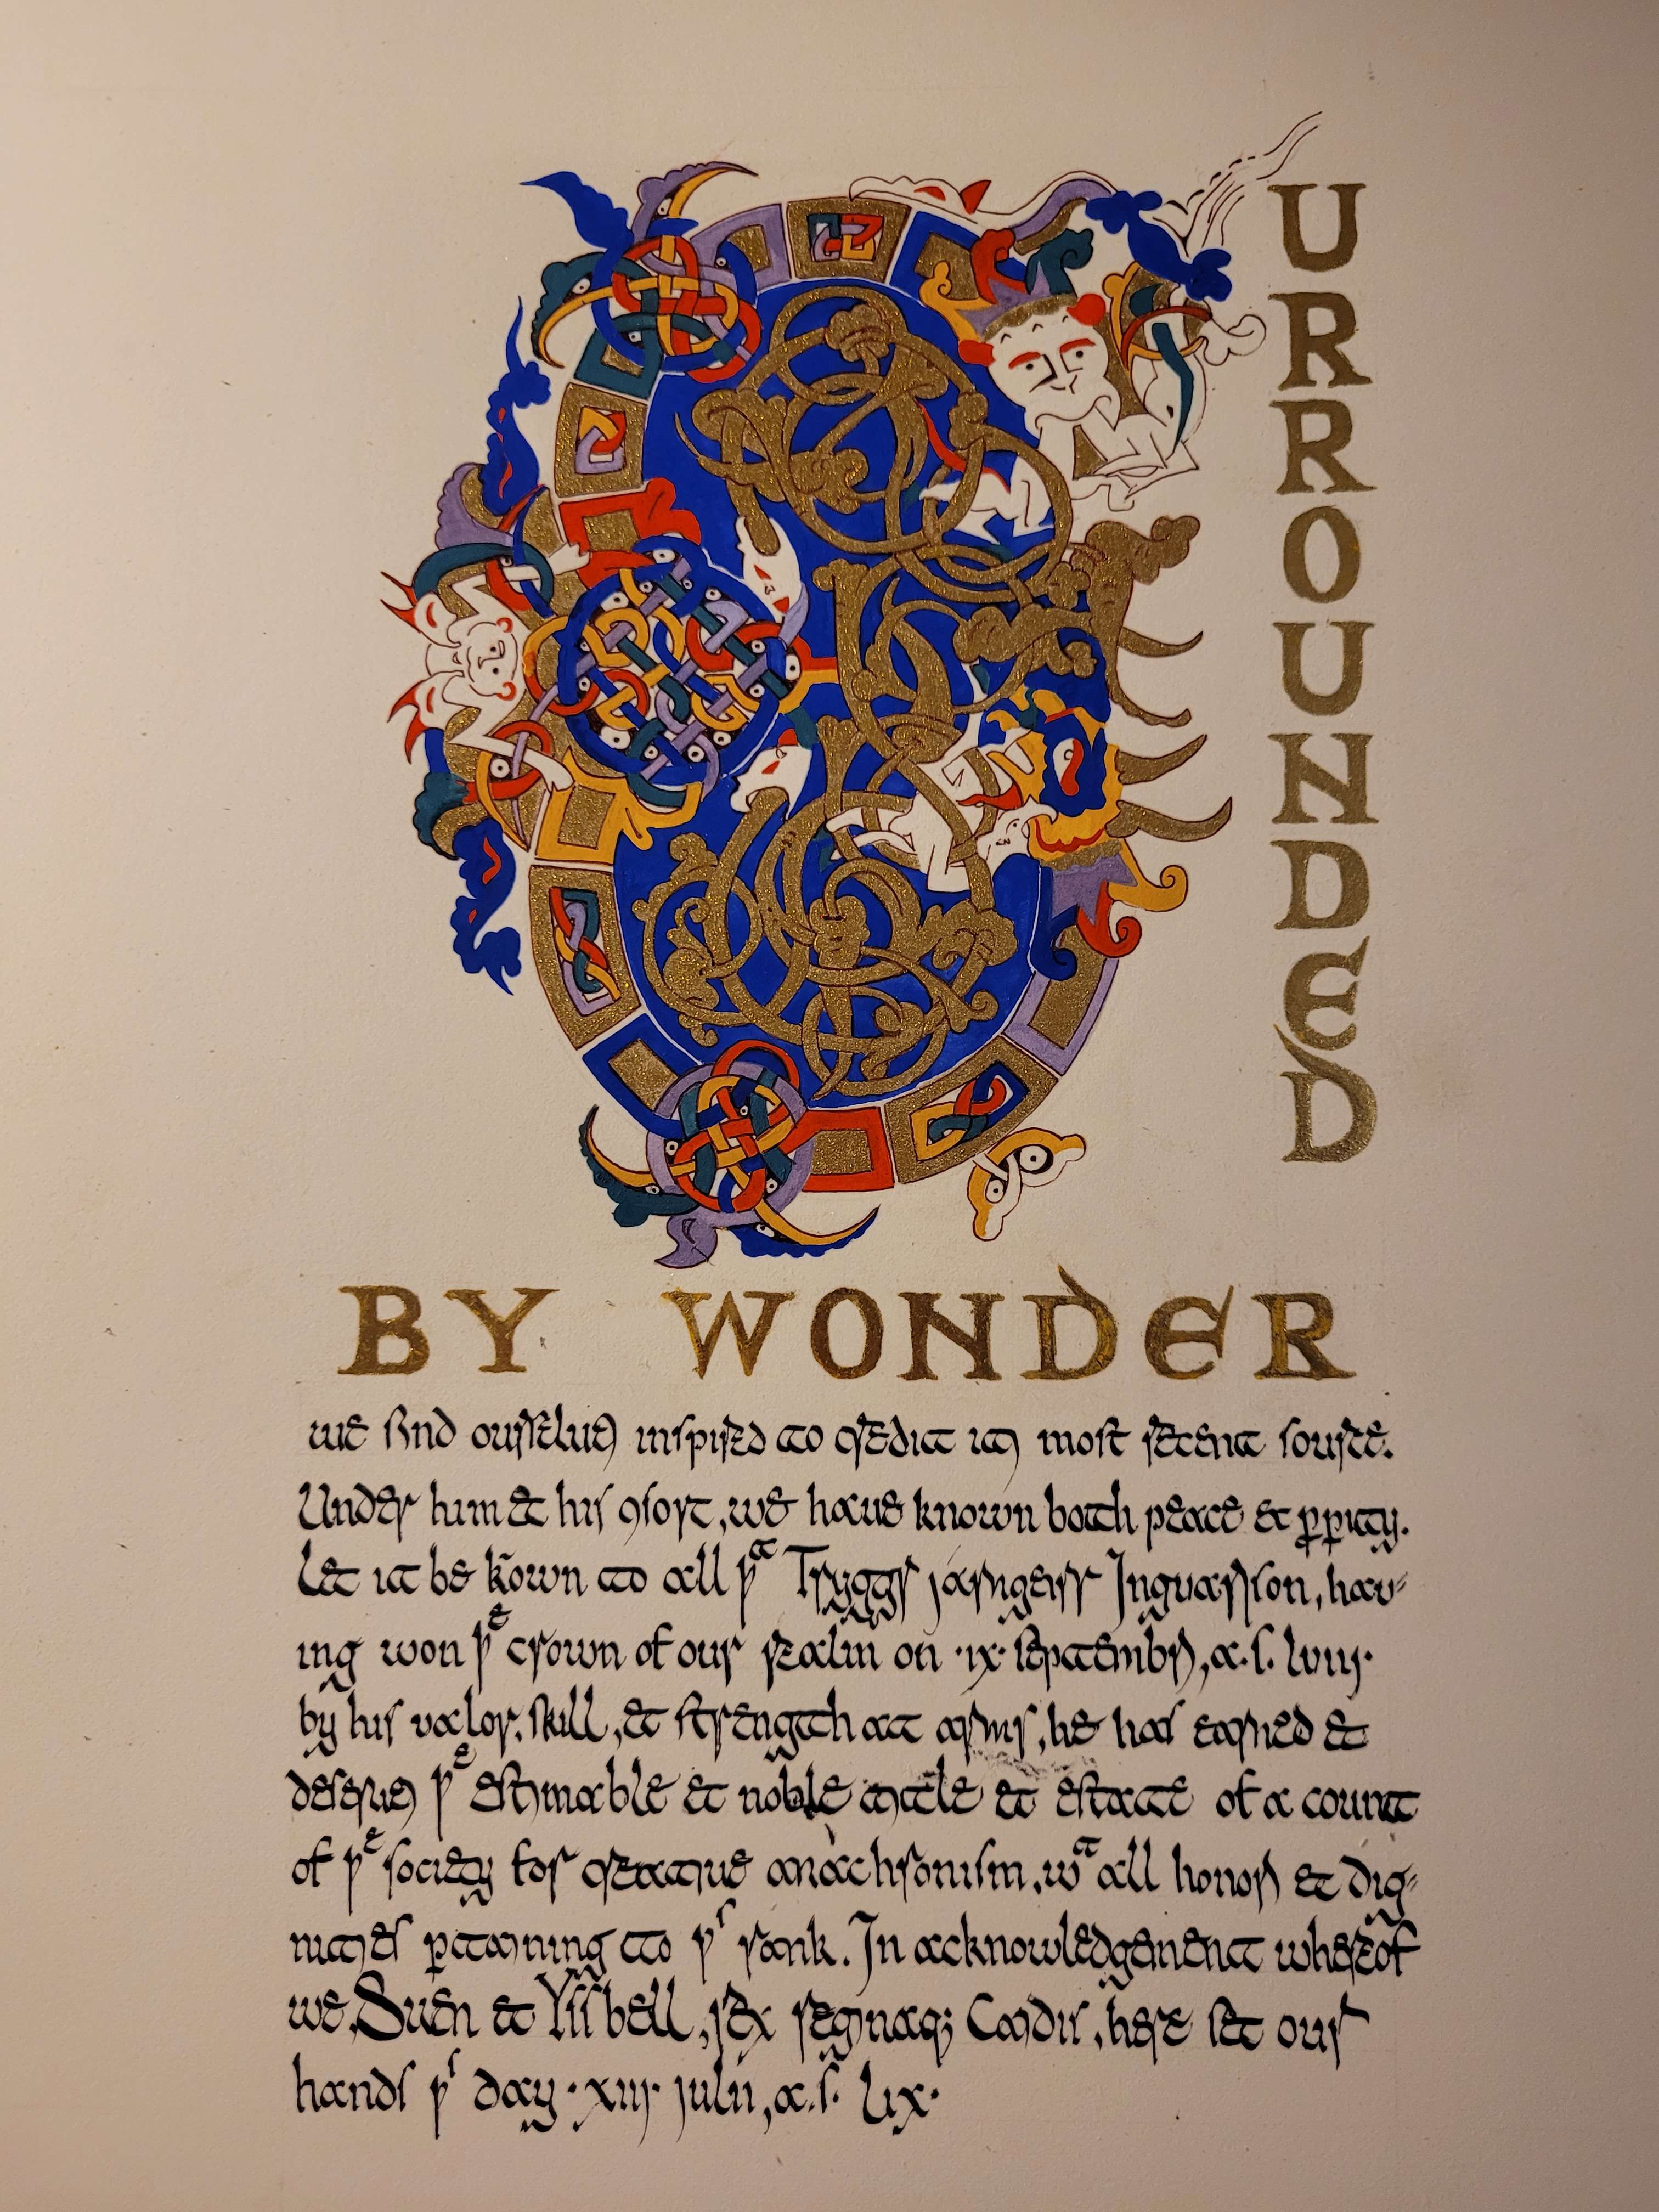 SURROUNDED
BY WONDER
we find ourselues inspired to credit it most recent source.
Under him & his 9sort, we haue known both peace & ꝓꝑity.
Let it be k̄own to all þᵗ Tryggr Jarngeirr Inguarsson, hau-
ing won þᵉ crown of our realm on ·ix· septembr, a.s. lviij·
by his valor, skill, & strength at arms, he has earned &
deserues þᵉ estimable & noble title & estate of a count
of þᵉ society for creatiue anachronism, wᵗ all honors & dig-
nities ꝑtaining to þˢ rank. In acknowledgement whereof
we, Suen & Yssbell, rex regnaq; Caidis, here set our
hands þˢ day ·xiij· julii, a.s. lix·